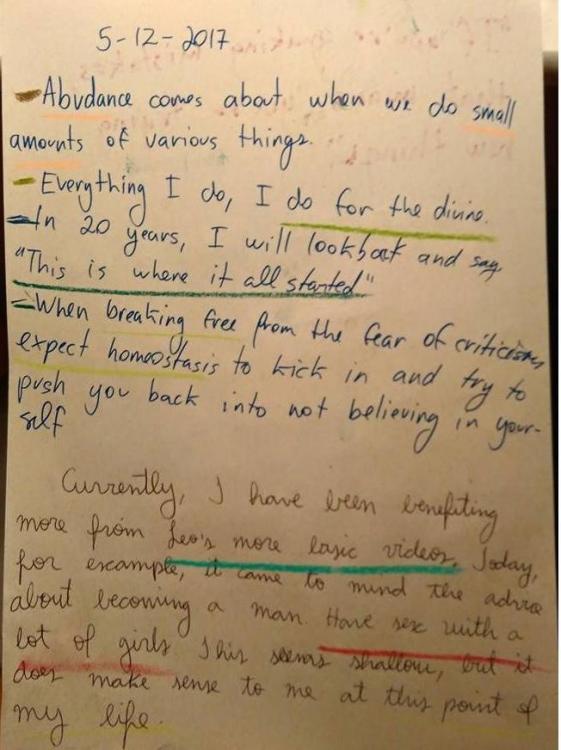 5-12-2017
- Abudance comes about when we do small
amounts of various things.
- Everything I do, I do for the divine.
- In 20 years, I will lookback and say
"This is where it all started"
- When breaking free from the fear of criticism
expect homeostasis to kick in and try to
push you back into not believing in your-
self
Currently, I have been benefiting
more from Leo's more basic videos. Today,
for example, it came to mind the advice
about becoming a man. Have sex with a
lot of girls This seems shallow, but it
does make sense to me at this point of
my life.